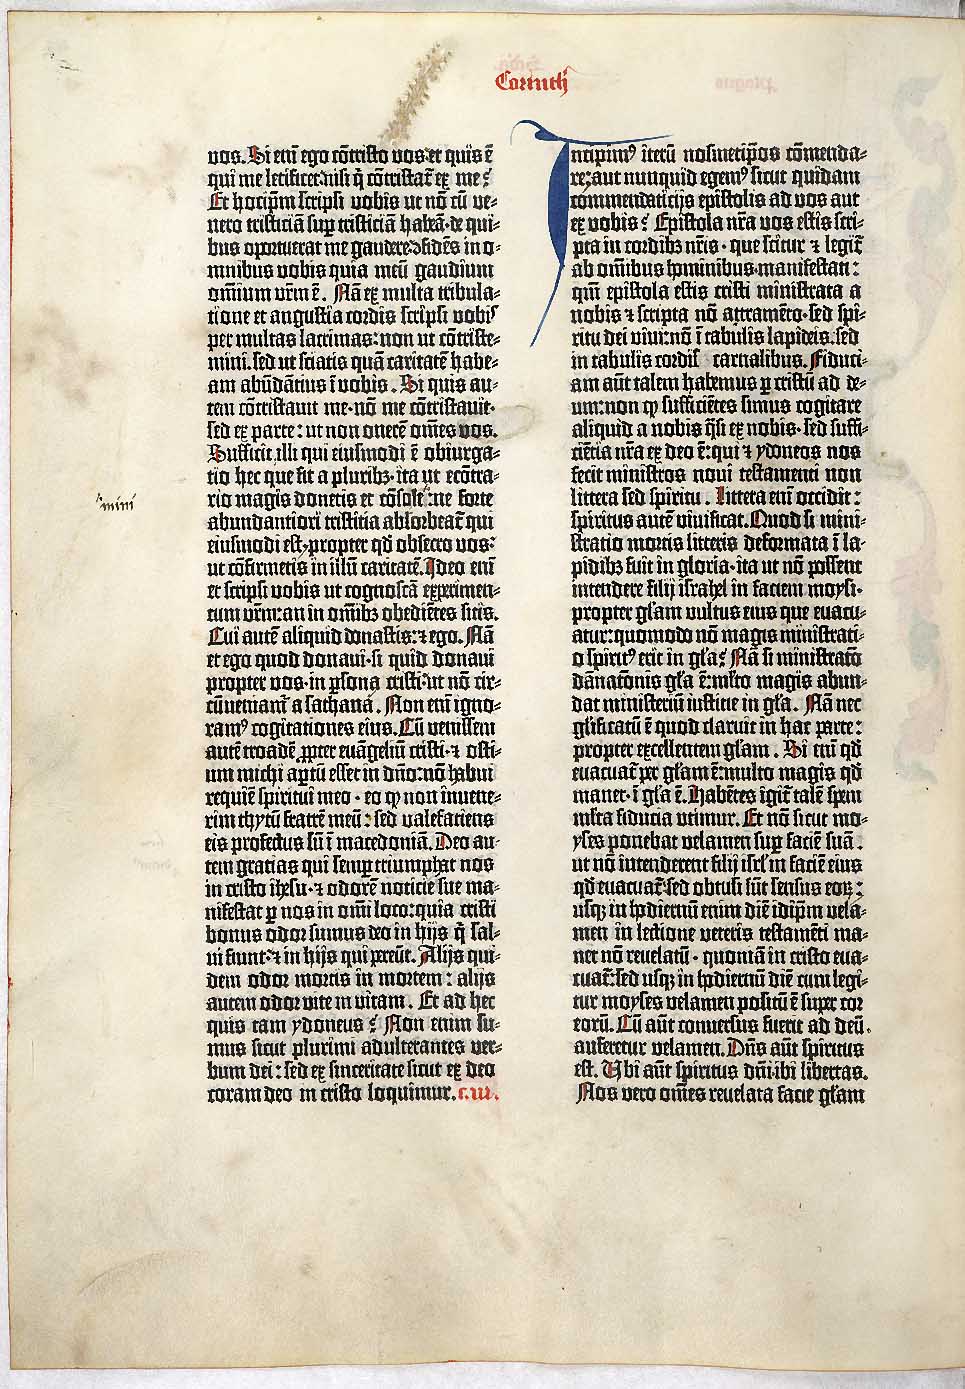 Corinth
uos. Si eni͂ ego cõtristo uos: et quis ẽ
qui me letificet: nisi q̃ cõtristat᷑ ex me?
Et hoc ip̄m scripsi vobis ut nõ cū ve-
nero tristiciā sup tristiciā habeā· de qui-
bus oportuerat me gaudere: cõfidēs in o-
mnibus vobis quia meū gaudium
om̄ium vr̄m ē. Nā ex multa tribula-
tione et angustia cordis scripsi vobis
per multas lacrimas: non ut cōtriste-
mini. sed ut sciatis quā caritatē habe-
am abūdātius ī vobis. Si quis au-
tem cōtristauit me· nō me cōtristauit·
sed ex parte: ut non onerē om̄es vos.
Sufficit illi qui eiusmodi ē obiurga-
tio hec que fit a pluribꝫ· ita ut ecōtra-
rio magis donetis et cōsolē: ne forte
mini
abundantiori tristitia absorbeat᷑ qui
eiusmodi est. propter qd̄ obsecro vos:
ut cōfirmetis in illū caritatē. Ideo eni͂
et scripsi vobis ut cognoscā experimen-
tum vr̄m: an in om̄ibꝫ obediētes sitis.
Cui autē aliquid donastis: ⁊ ego. Nā
et ego quod donaui· si quid donaui
propter vos· in p̲sona cristi: ut nō cir-
cūueniant᷑ a sathana. Non eni͂ igno-
ram⁹ cogitationes eius. Cū venissem
autē troadē p̲pter euāgeliū cristi· ⁊ osti-
um michi ap̲tū esset in dn̄o: nō habui
requiē spiritui meo· eo ꝙ non inuene-
rim thytū fratrē meū: sed valefaciens
eis profectus sū ī macedoniā. Deo au-
tem gratias qui semp̲ triumphat nos
in cristo ihesu· ⁊ odorē noticie sue ma-
nifestat p̲ nos in om̄i loco: quia cristi
bonus odor sumus deo in hijs q̄ sal-
ui fiunt: ⁊ in hijs qui pereūt. Alijs qui-
dem odor mortis in mortem: alijs
autem odor vite in vitam. Et ad hec
quis tam ydoneus? Non enim su-
mus sicut plurimi adulterantes ver-
bum dei: sed ex sinceritate sicut ex deo
coram deo in cristo loquimur. c. III.
Incipim⁹ iterū nosmetip̄os cōmenda-
re: aut nunquid egem⁹ sicut quidam
commendaticijs epistolis ad vos aut
ex vobis? Epistola nr̄a vos estis scri-
pta in cordibꝫ nr̄is· que scitur ⁊ legit᷑
ab om̄ibus hominibus· manifestati:
qm̄ epistola estis cristi ministrata a
nobis ⁊ scripta nō attramēto· sed spi-
ritu dei viui: nō ī tabulis lapideis. sed
in tabulis cordis carnalibus. Fiduci-
am aūt talem habemus p̲ cristū ad de-
um: non ꝙ sufficiētes simus cogitare
aliquid a nobis q̄si ex nobis· sed suffi-
ciētia nr̄a ex deo ē: qui ⁊ ydoneos nos
fecit ministros noui testamenti non
littera sed spiritu. Littera eni͂ occidit:
spiritus autē viuificat. Quod si mini-
stratio mortis litteris deformata ī la-
pidibꝫ fuit in gloria· ita ut nō possent
intendere filij israhel in faciem moysi·
propter gl̄am vultus eius que euacu-
atur: quomodo nō magis ministrati-
o spirit⁹ erit in gl̄a? Nā si ministratō
dānatōnis gl̄a ē: ml̄to magis abun-
dat ministeriū iustitie in gl̄a. Nā nec
gl̄ificatū ē quod claruit in hac parte:
propter excellentem gl̄am. Si eni͂ qd̄
euacuat᷑ per gl̄am ē: multo magis qd̄
manet· ī gl̄a ē. Habētes igit᷑ talē spem
ml̄ta fiducia vtimur. Et nō sicut mo-
yses ponebat velamen sup̲ faciē suā:
ut nō intenderent filij isrl̄ in faciē eius
qd̄ euacuat᷑· sed obtusi sūt sensus eoꝝ:
usqꝫ in hodiernū enim diē idip̄m vela-
men in lectione veteris testamēti ma-
net nō reuelatū· quoniā in cristo eua-
cuat᷑: sed usqꝫ in hodiernū diē cum legi-
tur moyses velamen positū ē super cor
eorū. Cū aūt conuersus fuerit ad deū.
auferetur velamen. Dn̄s aūt spiritus
est. Ubi aūt spiritus dn̄i: ibi libertas.
Nos vero om̄es reuelata facie gl̄am